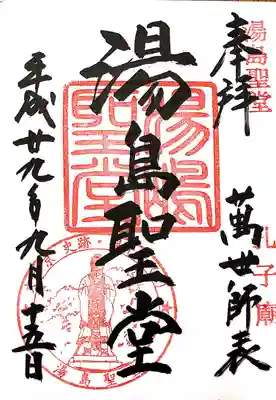 湯島聖堂
孔子廟
奉拝
萬世師表
湯島聖堂
湯島聖堂
平成廿九年九月十五日
史跡
湯島聖